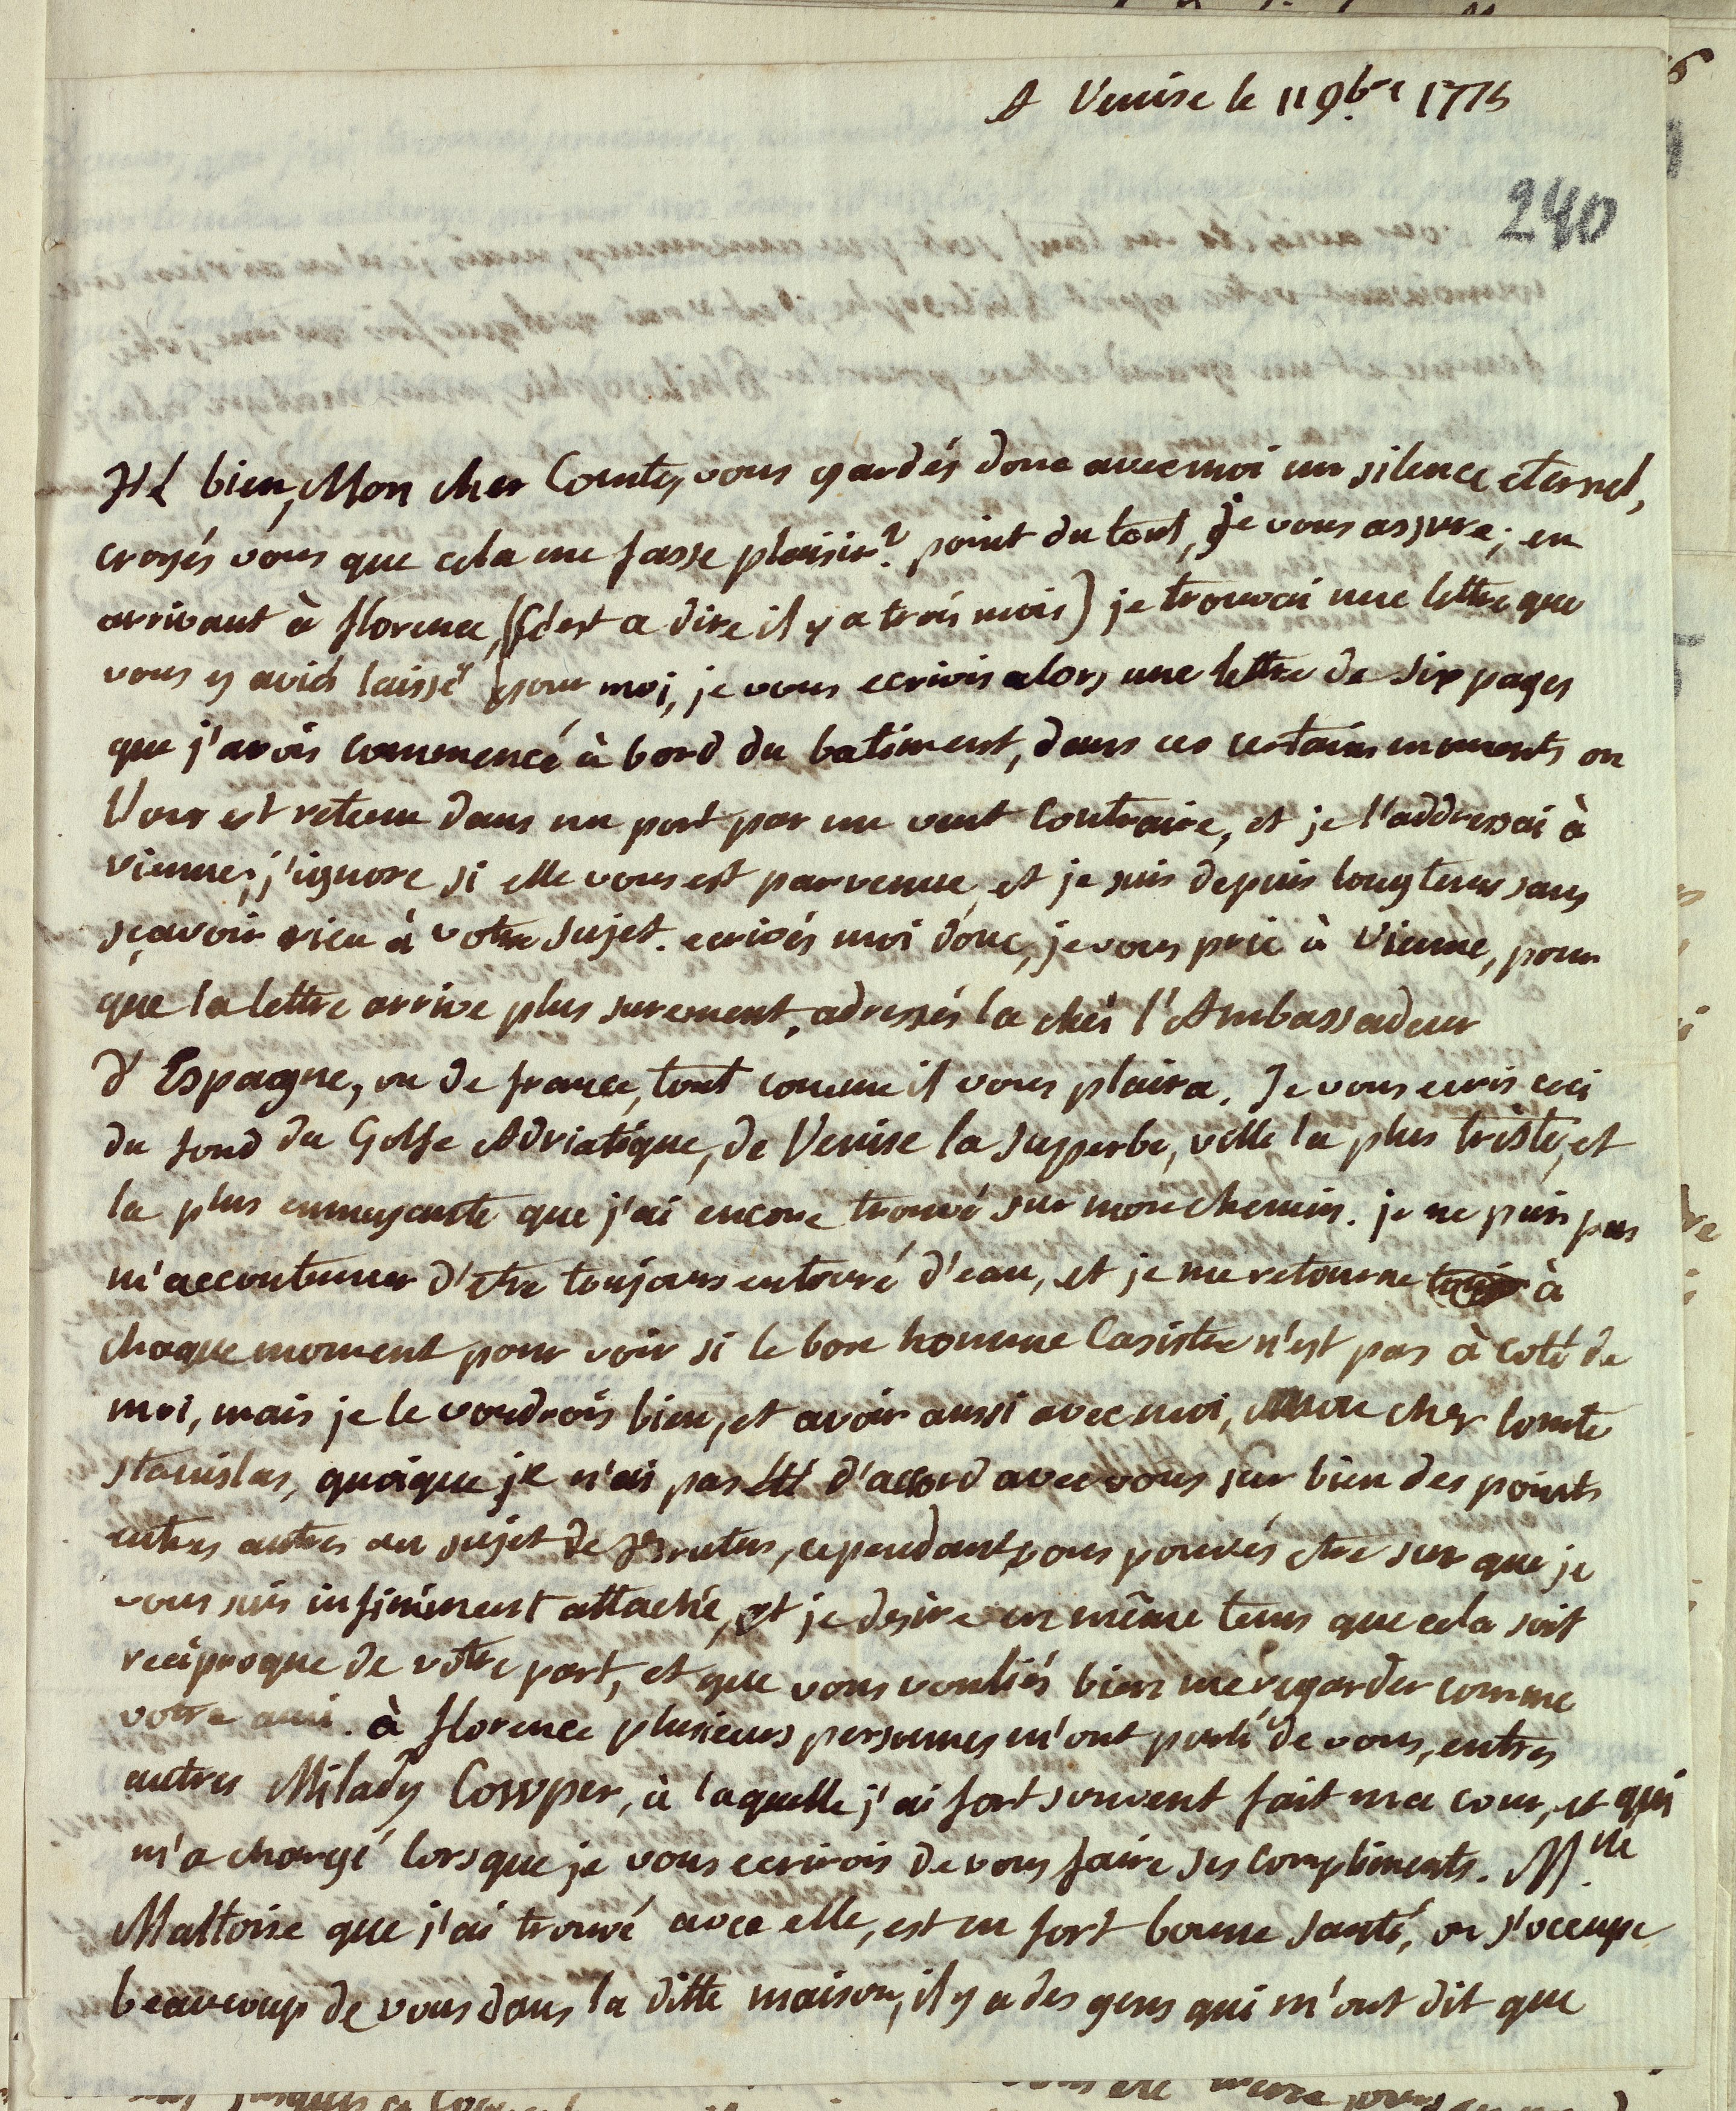 A Venise le 11 9bre 1775
240
Hé bien, Mon cher Comte, vous gardés donc avec moi un silence eternel,
croyés vous que cela me fasse plaisir? point du tout, je vous assure; en
arrivant à florence, (c'est a dire il y a trois mois) je trouvai une lettre que
vous y aviés laissé pour moi, je vous ecrivis alors une lettre de six pages
que j'avois commencé à bord du batiment, dans ces certains moments ou
l'on est retenu dans un port par un vent Contraire, et je l'addressai à
vienne; j'ignore si elle vous est parvenue, et je suis depuis longtems sans
sçavoir rien à votre sujet. ecrivés moi donc, je vous prie à Vienne, pour
que la lettre arrive plus surement, adressés la chés l'Ambassadeur
d'Espagne, ou de france, tout comme il vous plaira. Je vous ecris ceci
du fond du Golfe Adriatique, de Venise la superbe, ville la plus triste, et
la plus ennuyante que j'ai encore trouvé sur mon chemin. je ne puis pas
m'accoutumer d'etre toujours entouré d'eau, et je me retourne à
chaque moment pour voir si le bon homme Casistre n'est pas à coté de
moi, mais je le voudrois bien, et avoir aussi avec moi, mon cher Comte
Stanislas, quoique je n'ai pas été d'accord avec vous sur bien des points
entres autres au sujet de Brutus, cependant vous pouvés etre sur que je
vous suis infiniment attaché, et je desire en même tems que cela soit
reciproque de votre part, et que vous vouliés bien me regarder comme
votre ami. à florence plusieurs personnes m'ont parlé de vous, entres
autres Milady Cowper, à laquelle j'ai fort souvent fait ma cour, et qui
m'a chargé lorsque je vous ecrirois de vous faire ses compliments. Mlle
Maltoise que j'ai trouvé avec elle, est en fort bonne santé, on s'occupe
beaucoup de vous dans la ditte maison, il y a des gens qui m'ont dit que